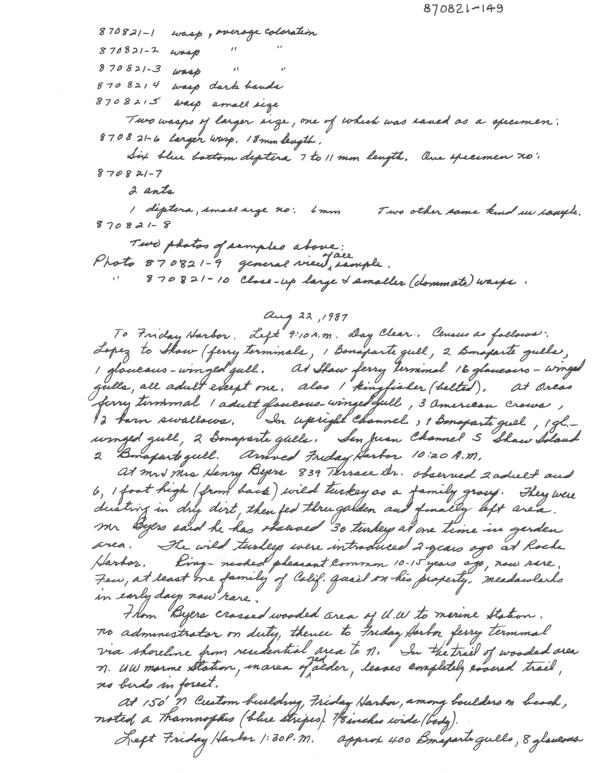 870821-149
870821-1 wasp, average coloration
870821-2 wasp " "
870821-3 wasp " "
870821,4 wasp dark bands
870821.5 wasp small size
Two wasps of larger size, one of which was saved as a specimen:
870821-6 larger wasp. 18mm length.
Six blue bottom diptera 7 to 11 mm length. One specimen no:
870821-7
2 ants
1 diptera, small size no: 6mm Two other same kind in sample.
870821-8
Two photos of samples above:
Photo 870821-9 general view of all sample.
" 870821-10 Close-up large & smaller (dominate) wasps.
Aug 22, 1987
To Friday Harbor. Left 9:10 A.M. Day Clear. Census as follows:
Lopez to Shaw (ferry terminals, 1 Bonaparte gull, 2 Bonaparte gulls,
1 glaucous-winged gull. At Shaw ferry terminal 16 glaucous-winged
gulls, all adult except one. Also 1 kingfisher (belted). At Orcas
ferry terminal 1 adult glaucous-winged gull, 3 American crows,
12 barn swallows. In Upright Channel, 1 Bonaparte gull, 1 gl.-
winged gull, 2 Bonaparte gulls. San Juan Channel S Shaw Island
2 Bonaparte gull. Arrived Friday Harbor 10:20 A.M.
At Mr & Mrs Henry Byers 839 Terrace Dr. observed 2 adult and
6, 1 foot high (from back) wild turkey as a family group. They were
dusting in dry dirt, then fed thru garden and finally left area.
Mr Byers said he has observed 30 turkeys at one time in garden
area. The wild turkeys were introduced 2 years ago at Roche
Harbor. Ring-necked pheasant common 10-15 years ago, now rare.
Few, at least one family of Calif. quail on his property. Meadowlarks
in early days now rare.
From Byers crossed wooded area of U.W to marine Station.
no administrator on duty, thence to Friday Harbor ferry terminal
via shoreline from residential area to N. In the trail of wooded area
N. UW marine Station, in area of red alder, leaves completely covered trail,
no birds in forest.
At 150' N Custom building, Friday Harbor, among boulders on beach,
noted a Thamnophis (blue stripes) 7/8 inches wide (body).
Left Friday Harbor 1:30 P.M. Approx 400 Bonaparte gulls, 8 glaucous